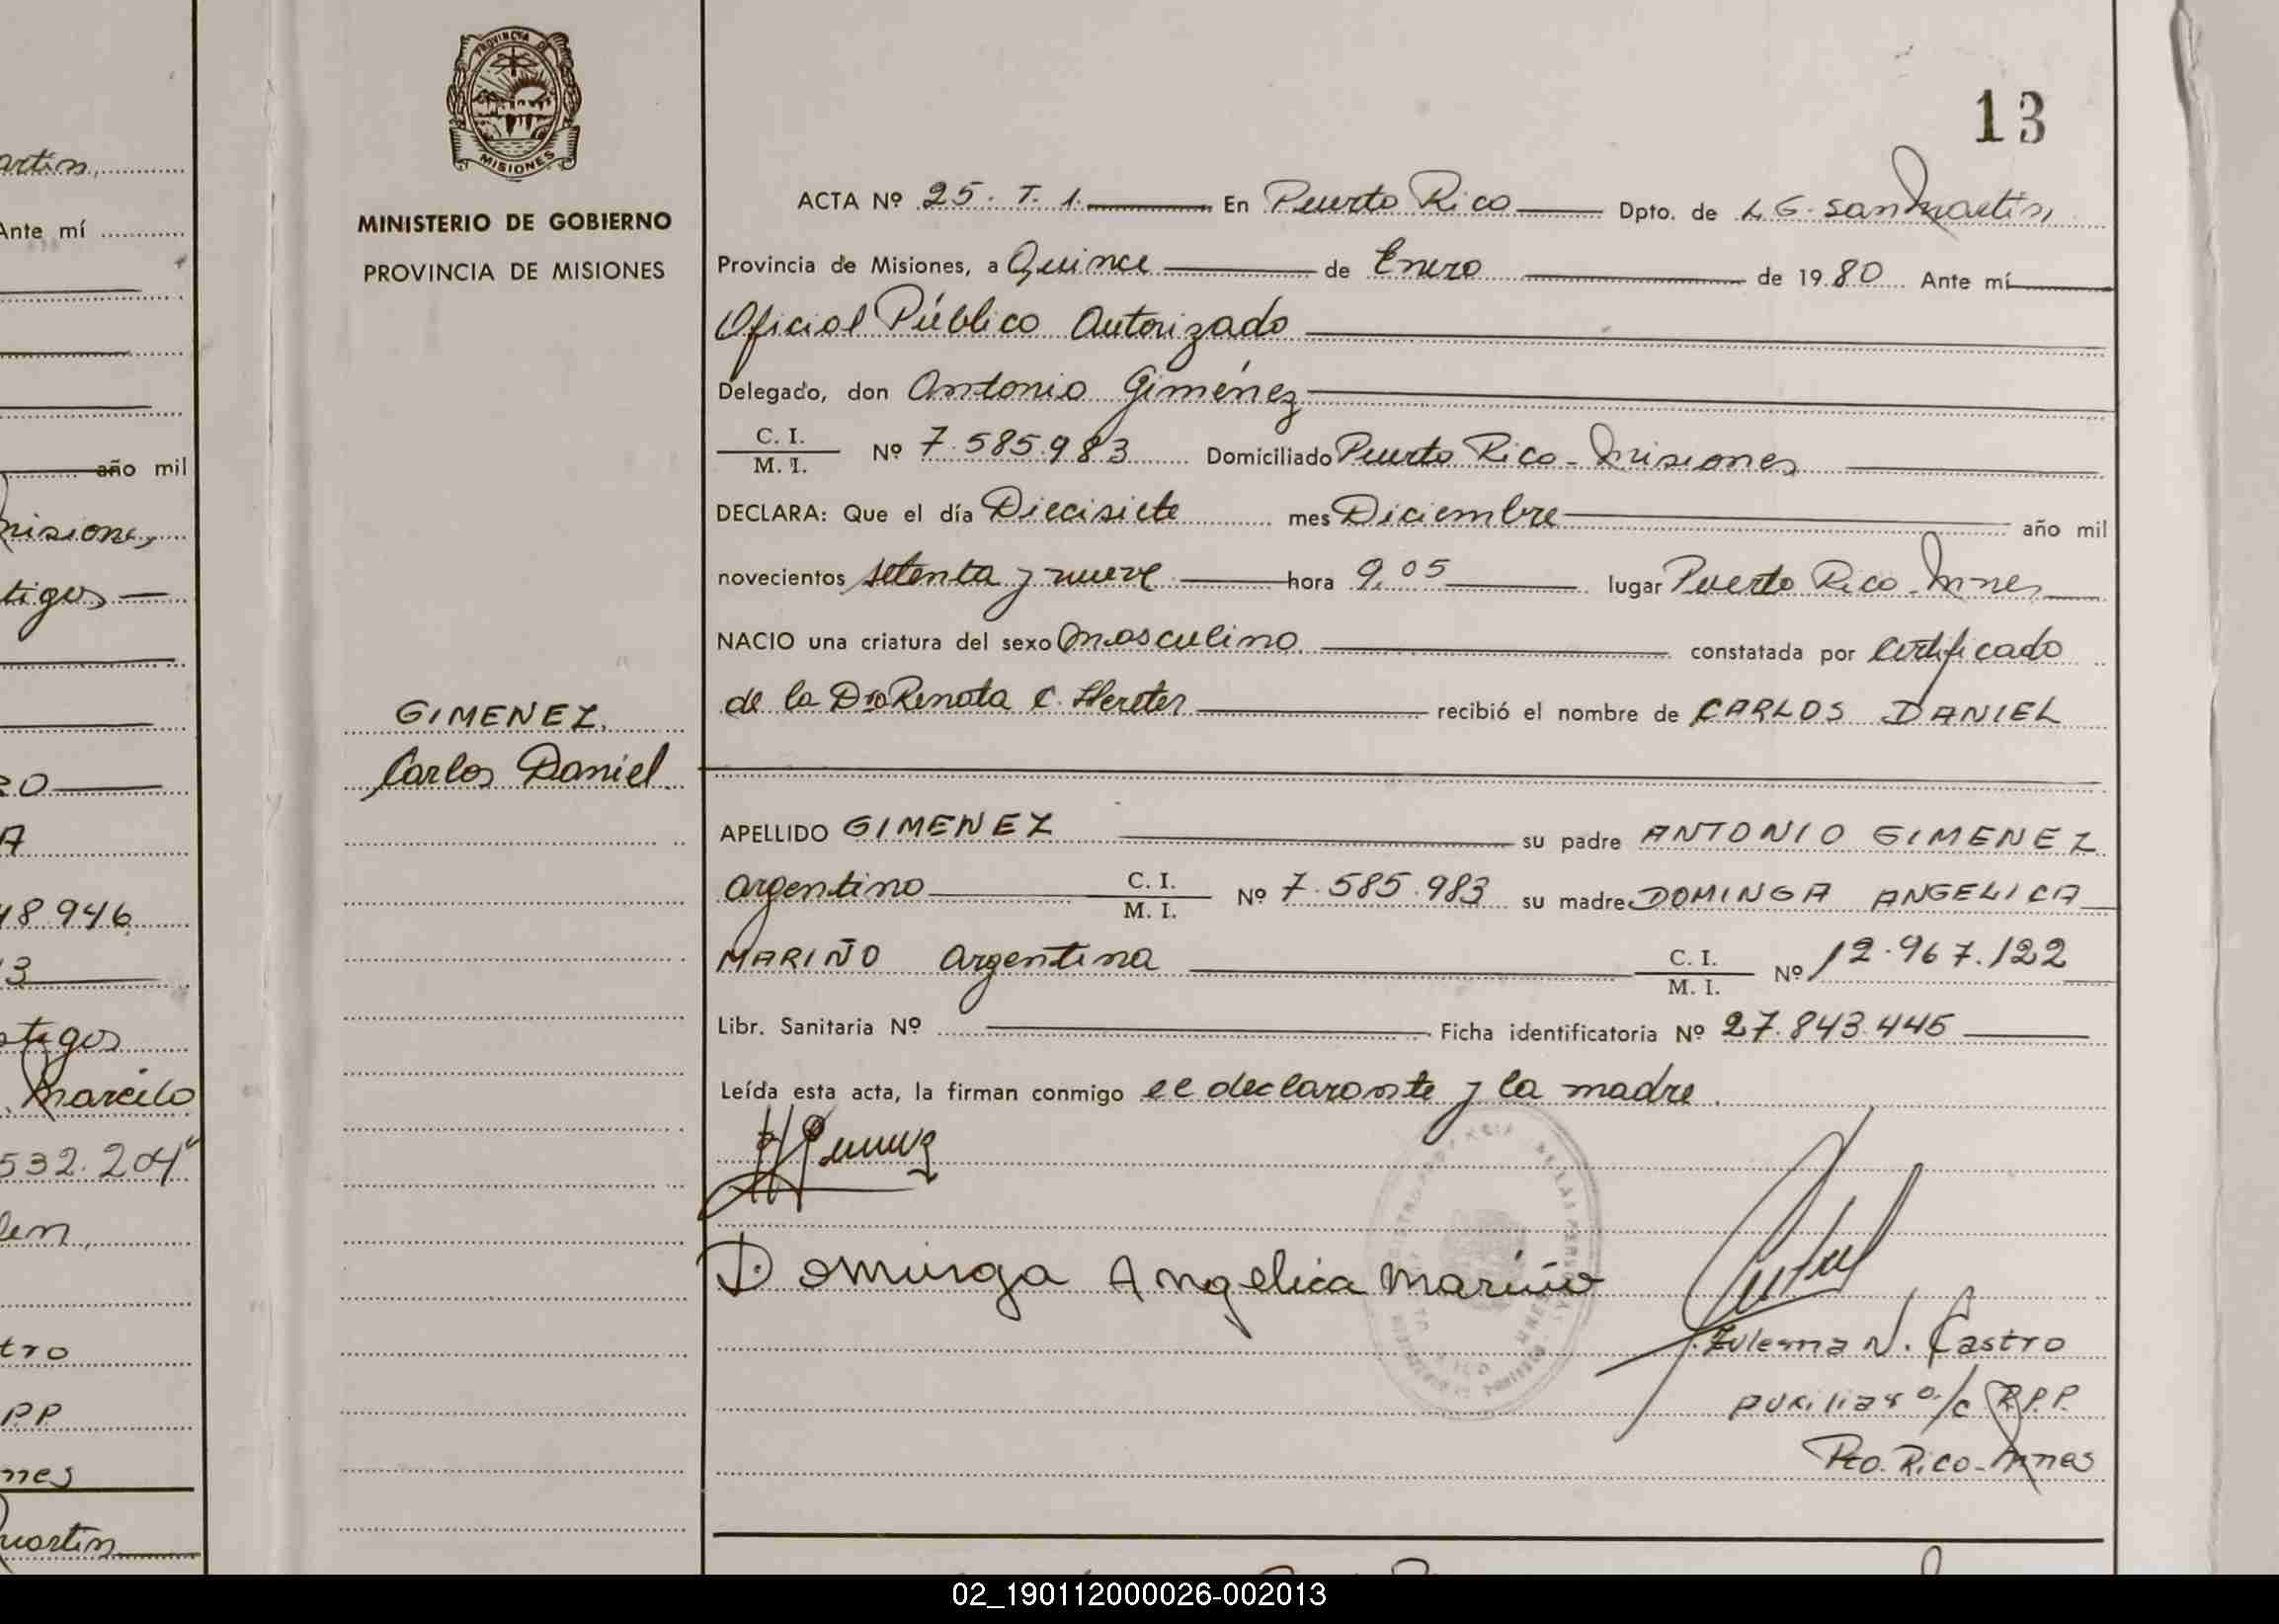 PROVINCIA DE
MISIONES
MINISTERIO DE GOBIERNO
PROVINCIA DE MISIONES
GIMENEZ.
Carlos Daniel
13
ACTA Nº 25. T. 1. En Puerto Rico Dpto. de L G. San Martin,
Provincia de Misiones, a Quince de Enero de 1980 Ante mí
Oficial Público Autorizado
Delegado, don Antonio Giménez
C. I. / M. I. Nº 7.585.983 Domiciliado Puerto Rico - Misiones
DECLARA: Que el día Diecisiete mes Diciembre año mil
novecientos setenta y nueve hora 9,05 lugar Puerto Rico - Mnes
NACIO una criatura del sexo Masculino constatada por Certificado
de la Dra Renata C. Herter recibió el nombre de CARLOS DANIEL
APELLIDO GIMENEZ su padre ANTONIO GIMENEZ
Argentino C. I. / M. I. Nº 7.585.983 su madre DOMINGA ANGELICA
MARIÑO Argentina C. I. / M. I. Nº 12.967.122
Libr. Sanitaria Nº Ficha identificatoria Nº 27.843.445
Leída esta acta, la firman conmigo el declarante y la madre.
Dominga Angelica Mariño
Zulema N. Castro
Auxiliar a/c R.P.P.
Pto. Rico - Mnes
artin,
Ante mí
año mil
misiones,
tigos
RO
A
48.946
13
stigos
Marcilo
532.204
len,
tro
PP
nes
Martin
02_190112000026-002013